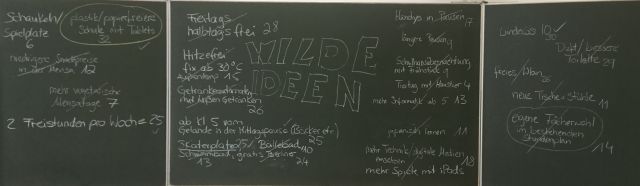 Schaukeln/
Spielplatz
6
plastik/papierfreiere
Schule mit Tablets
32
niedrigere
in der Mensa 12
mehr vegetarische
Mensatage 7
2 Freistunden pro Woche 25
Freitags
halbtags frei 28
Hitzefrei
fix ab 30°C
Außentemp. 15
Getränkeautomaten
mit süßen Getränken
26
ab Kl. 5 vorm
Gelände in der Mittagspause (Bäcker etc)
25
Skaterplatz 15 Bällebad
10
Schwimmbad, gratis Berliner
13 24
WILDE
IDEEN
Handys in Pausen 17
längere Pausen 9
Schulhausübernachtung
mit Frühstück 9
Freitag mit Haustier 4
mehr Informatik ab 5 13
japanisch lernen 11
mehr Technik/digitale Medien
einsetzen 18
mehr Spiele mit iPads
windows 10
30
Duft/bessere
Toilette 29
freies Wlan
26
neue Tische + Stühle 11
eigene Fächerwahl
im bestehenden
Stundenplan
14